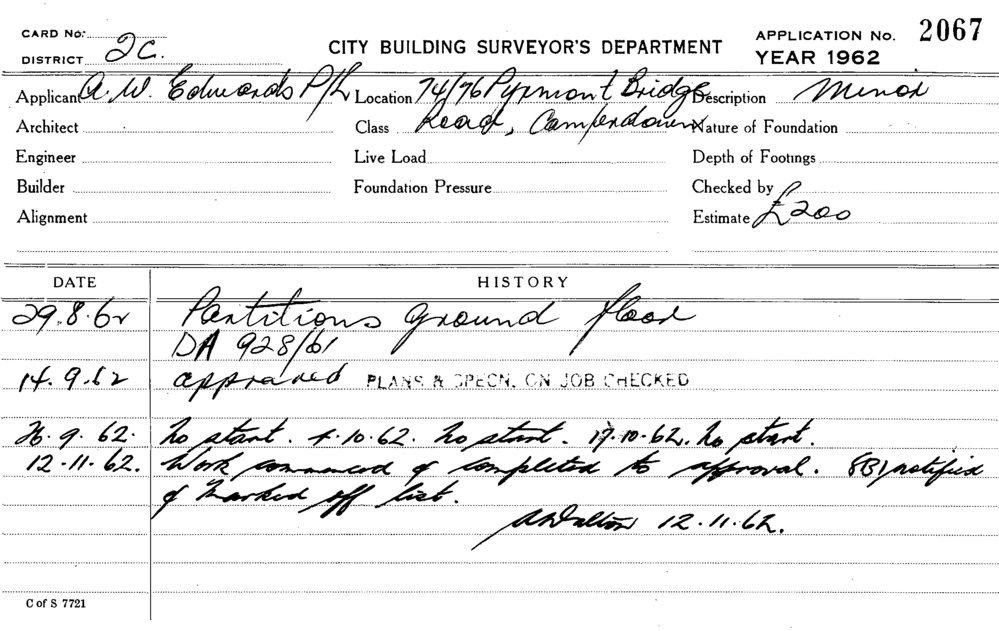 CARD No: CITY BUILDING SURVEYOR'S DEPARTMENT APPLICATION No. 2067
DISTRICT 2C. YEAR 1962
Applicant A. W. Edwards P/L Location 74/76 Pyrmont Bridge Description Minor
Architect Class Road, Camperdown Nature of Foundation
Engineer Live Load Depth of Footings
Builder Foundation Pressure Checked by
Alignment Estimate £200
DATE HISTORY
29.8.62 Partitions ground floor
DA 928/61
14.9.62 approved PLANS & SPECN. ON JOB CHECKED
26.9.62. No start. 4.10.62. No start. 17.10.62. No start.
12.11.62. Work commenced & completed to approval. SBI notified
& marked off list.
12.11.62.
C of S 7721